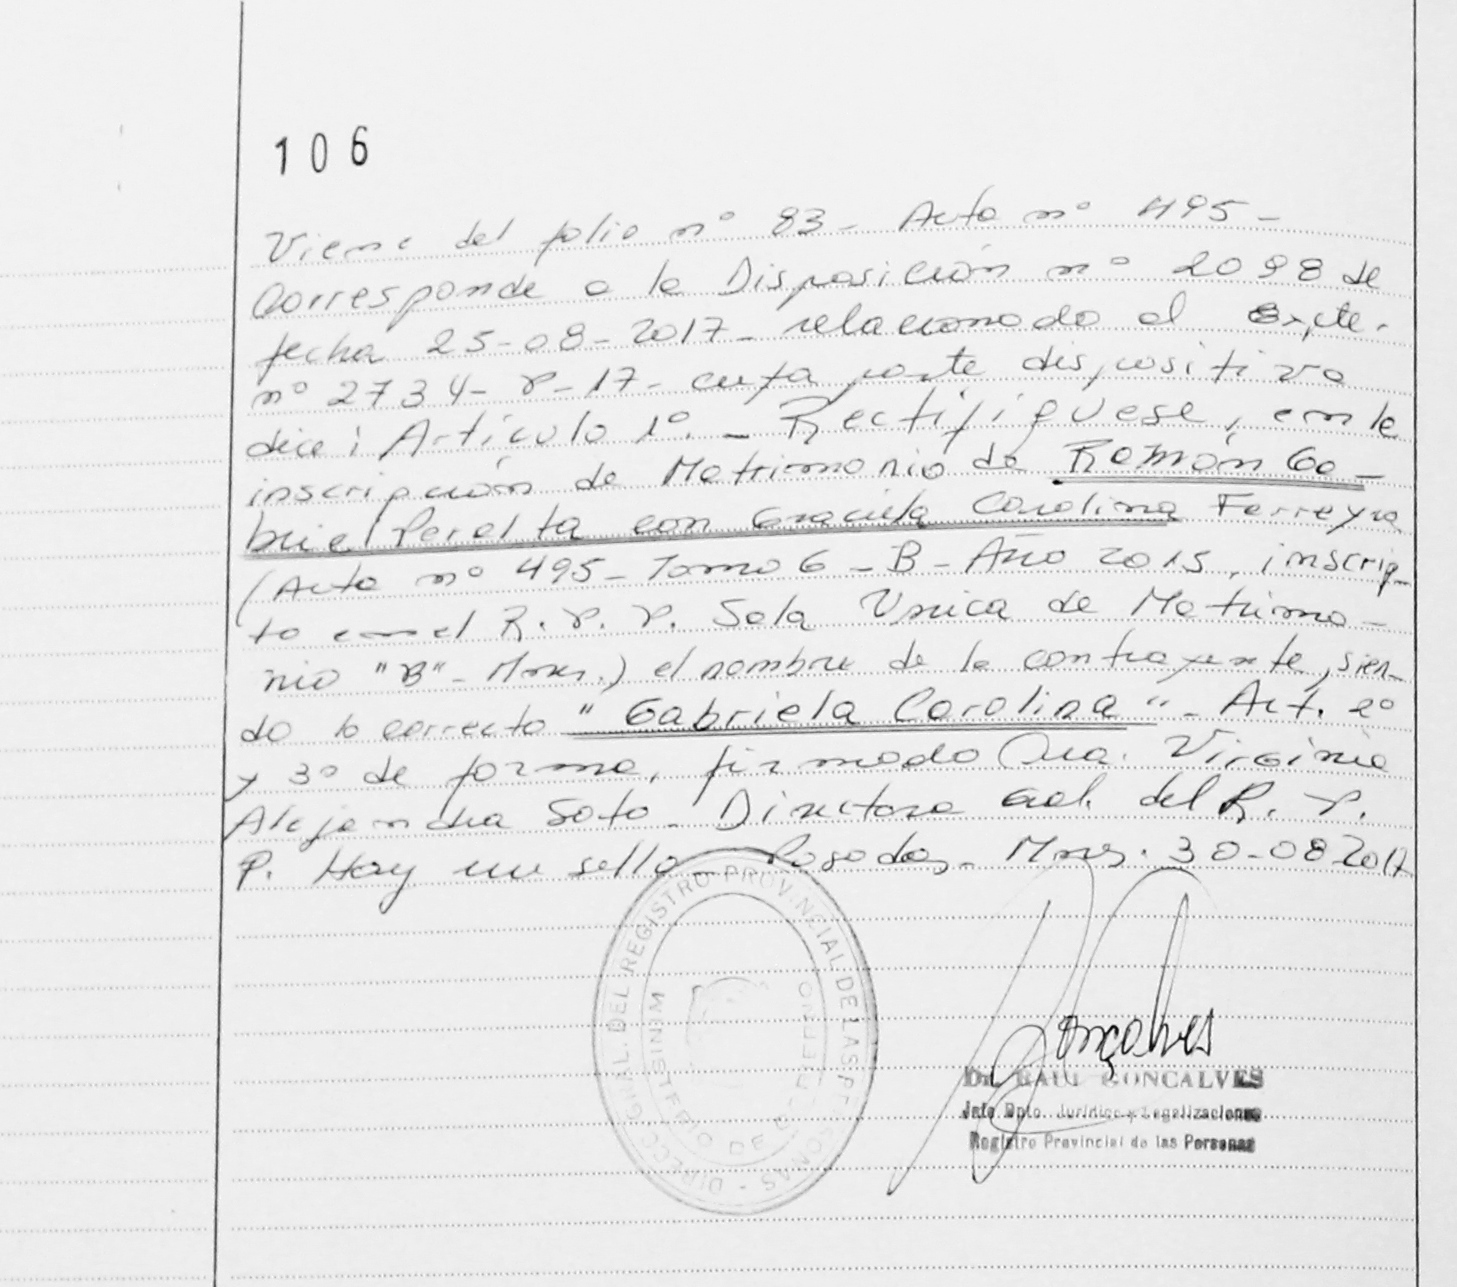 106
Viene del folio nº 83 - Acta nº 495 -
Corresponde a la Disposición nº 2098 de
fecha 25-08-2017 - relacionado al Expte.
nº 2734-P-17- cuya parte dispositiva
dice: Artículo 1º. - Rectifíquese, en la
inscripción de Matrimonio de Ramón Ga-
briel Peralta con Graciela Carolina Ferreyra
(Acta nº 495 - Tomo 6 - B - Año 2015, inscrip-
to en el R. P. P. Sala Unica de Matrimo-
nio "B" - Mnes.) el nombre de la contrayente, sien-
do lo correcto "Gabriela Carolina" - Art. 2º
y 3º de forma, firmado Dra. Virginia
Alejandra Soto - Directora Gral. del R. P.
P. Hay un sello - Posadas, - Mnes. 30-08-2017
DIRECC. GRAL. DEL REGISTRO PROVINCIAL DE LAS PERSONAS -
MINISTERIO DE GOBIERNO
Gonçalves
Dr. RAUL GONCALVES
Jefe Dpto. Jurídico y Legalizaciones
Registro Provincial de las Personas